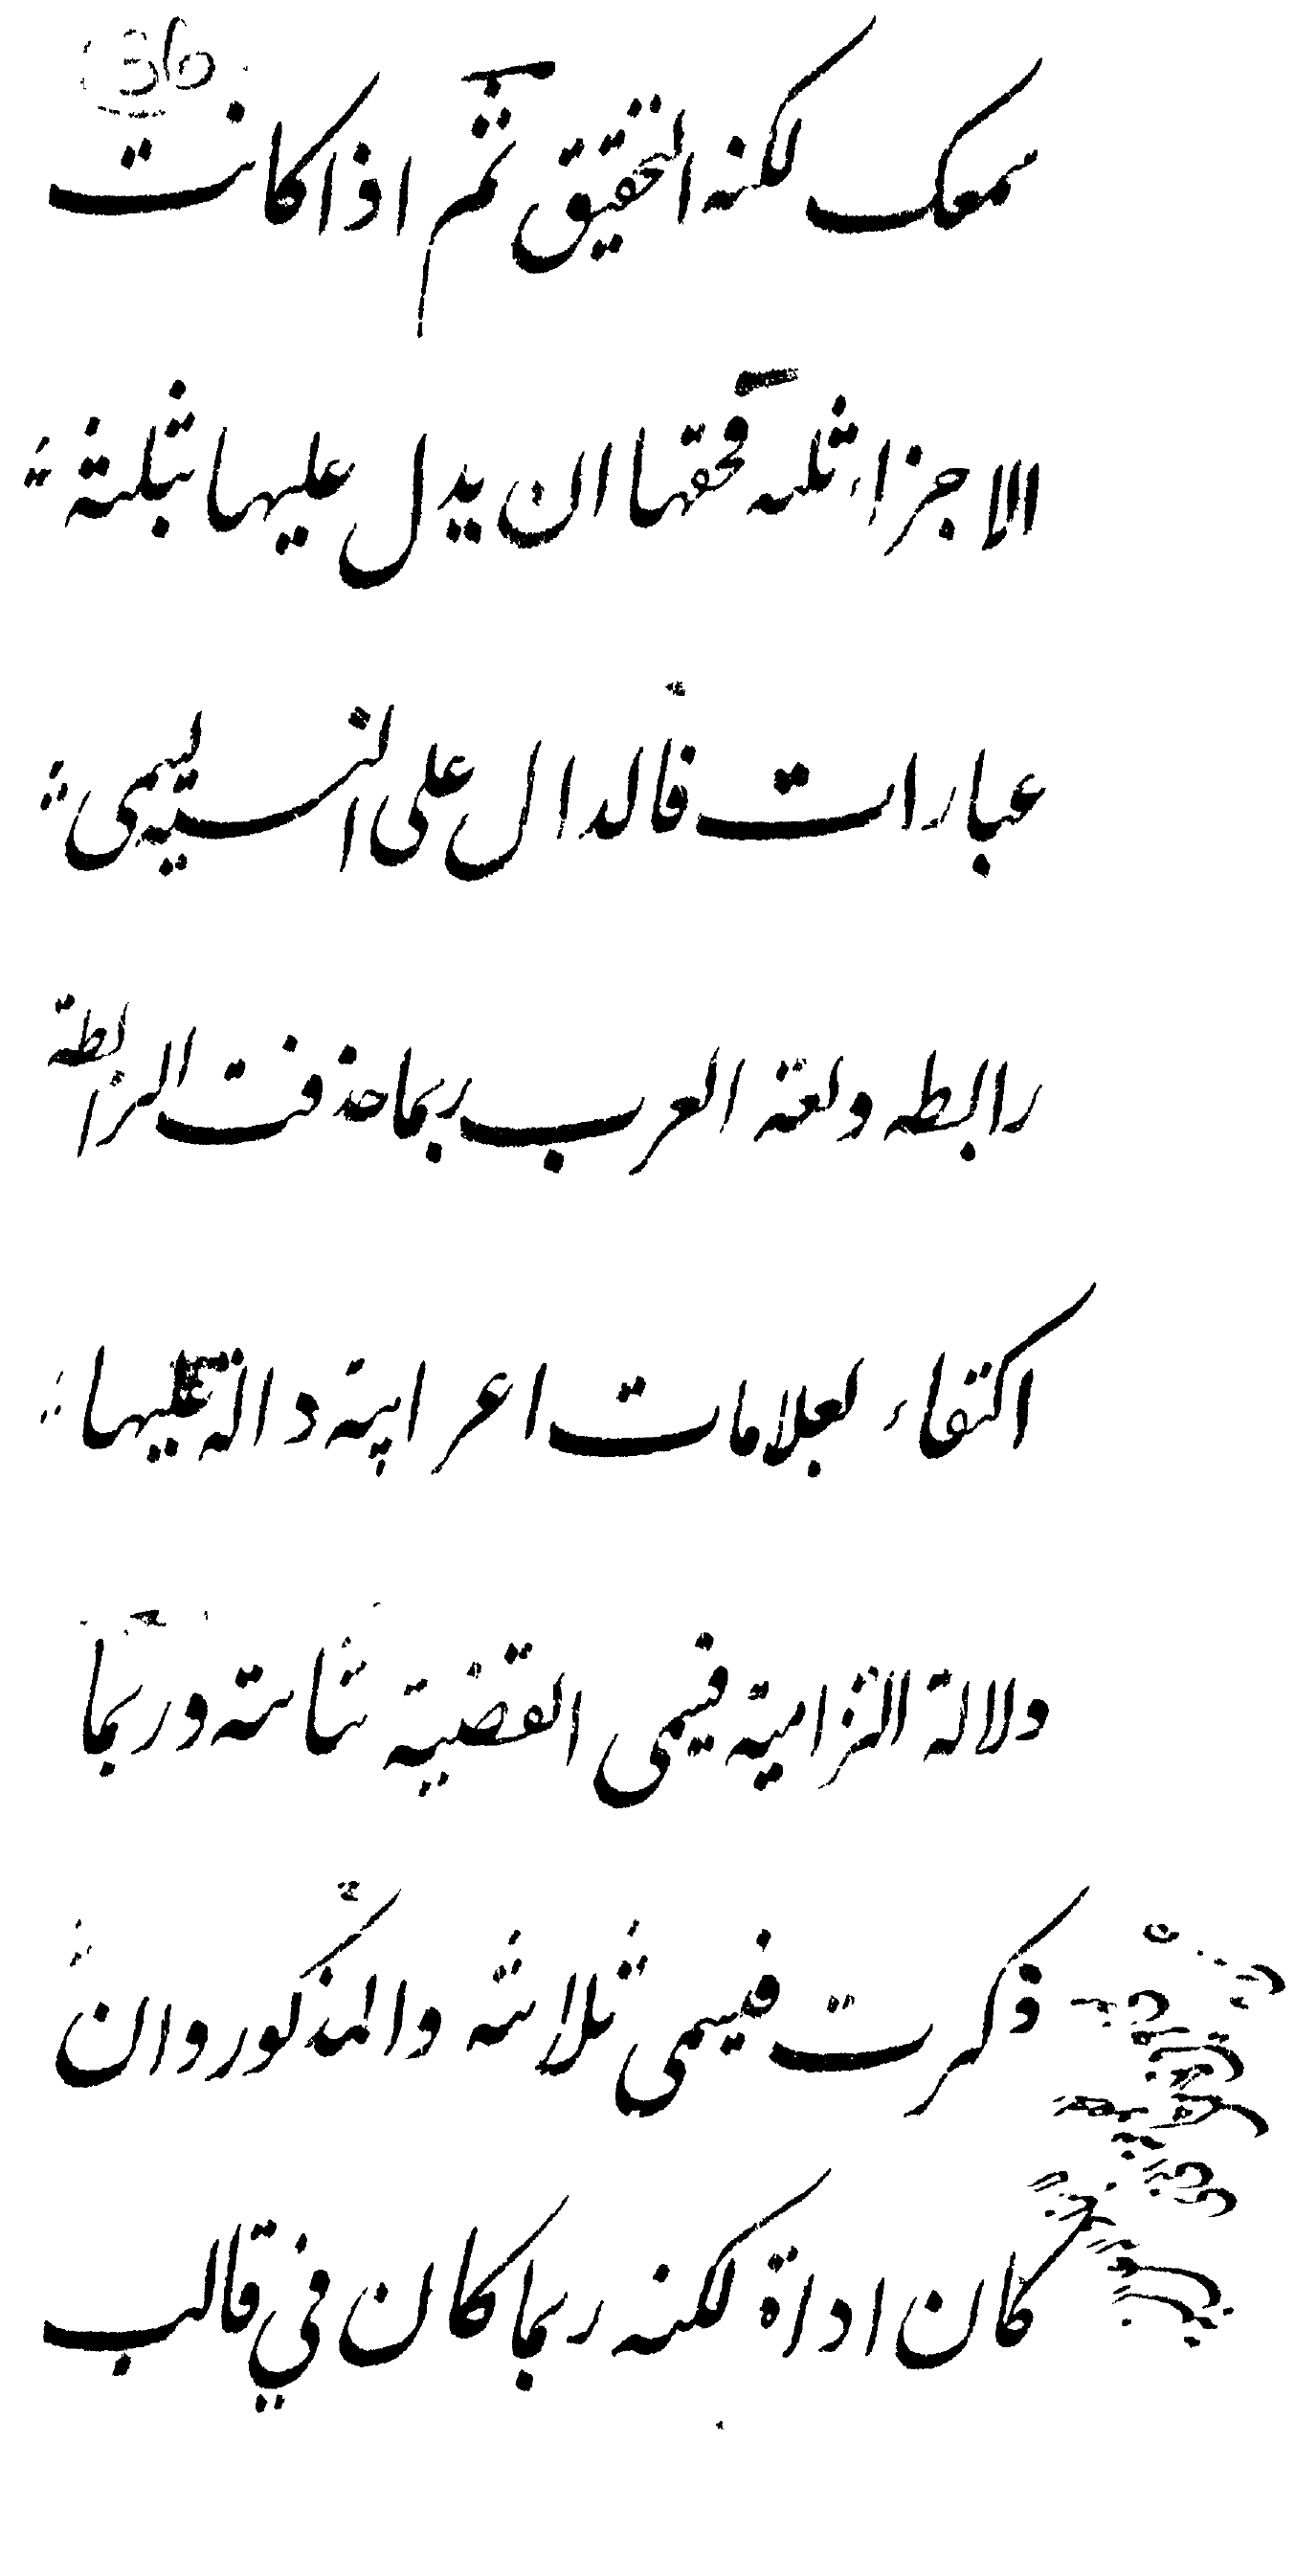 36
سمعک لکنه التحقیق ثم اذا کانت
الاجزاء ثلثه فحقها ان یدل علیها بثلثة
عبارات فالدال علی النسبیة یسمی
رابطه ولغة العرب ربما حذفت الرابطة
اکتفاء بعلامات اعرابیة دالة علیها
دلالة التزامیة فیسمی القضیة ثنائیة وربما
ذکرت فیسمی ثلاثیة والمذکور وان
کان اداة لکنه ربما کان في قالب